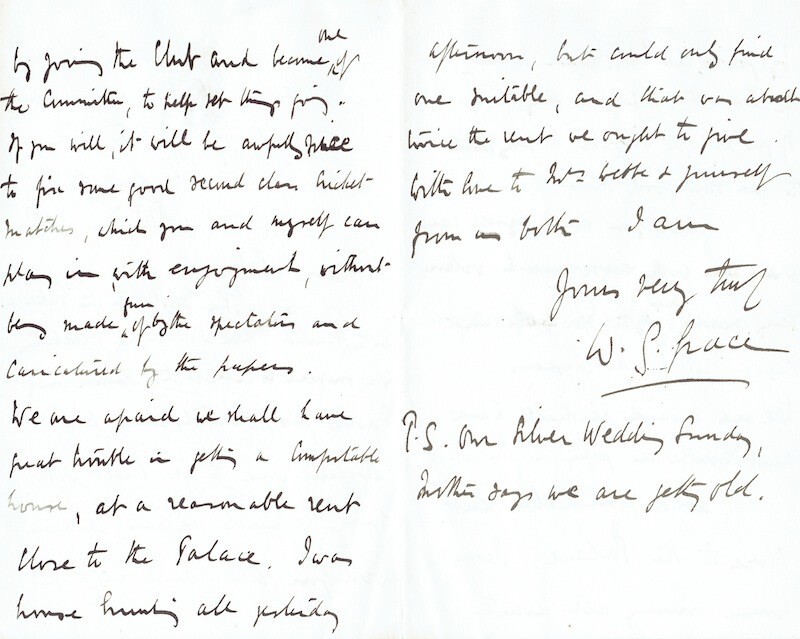 by joining the Club and become one of
the Committee, to help set things going.
If you will, it will be awfully nice
to fix some good second class Cricket
matches, which you and myself can
play in with enjoyment, without
being made fun of by the spectators and
caricatured by the papers.
We are afraid we shall have
great trouble in getting a comfortable
house, at a reasonable rent
close to the Palace. I was
house hunting all yesterday
afternoon, but could only find
one suitable, and that was about
twice the rent we ought to give.
With love to Mrs Webbe & yourself
from us both I am
Yours very truly
W. G. Grace
P.S. Our Silver Wedding Sunday,
Mother says we are getting old.